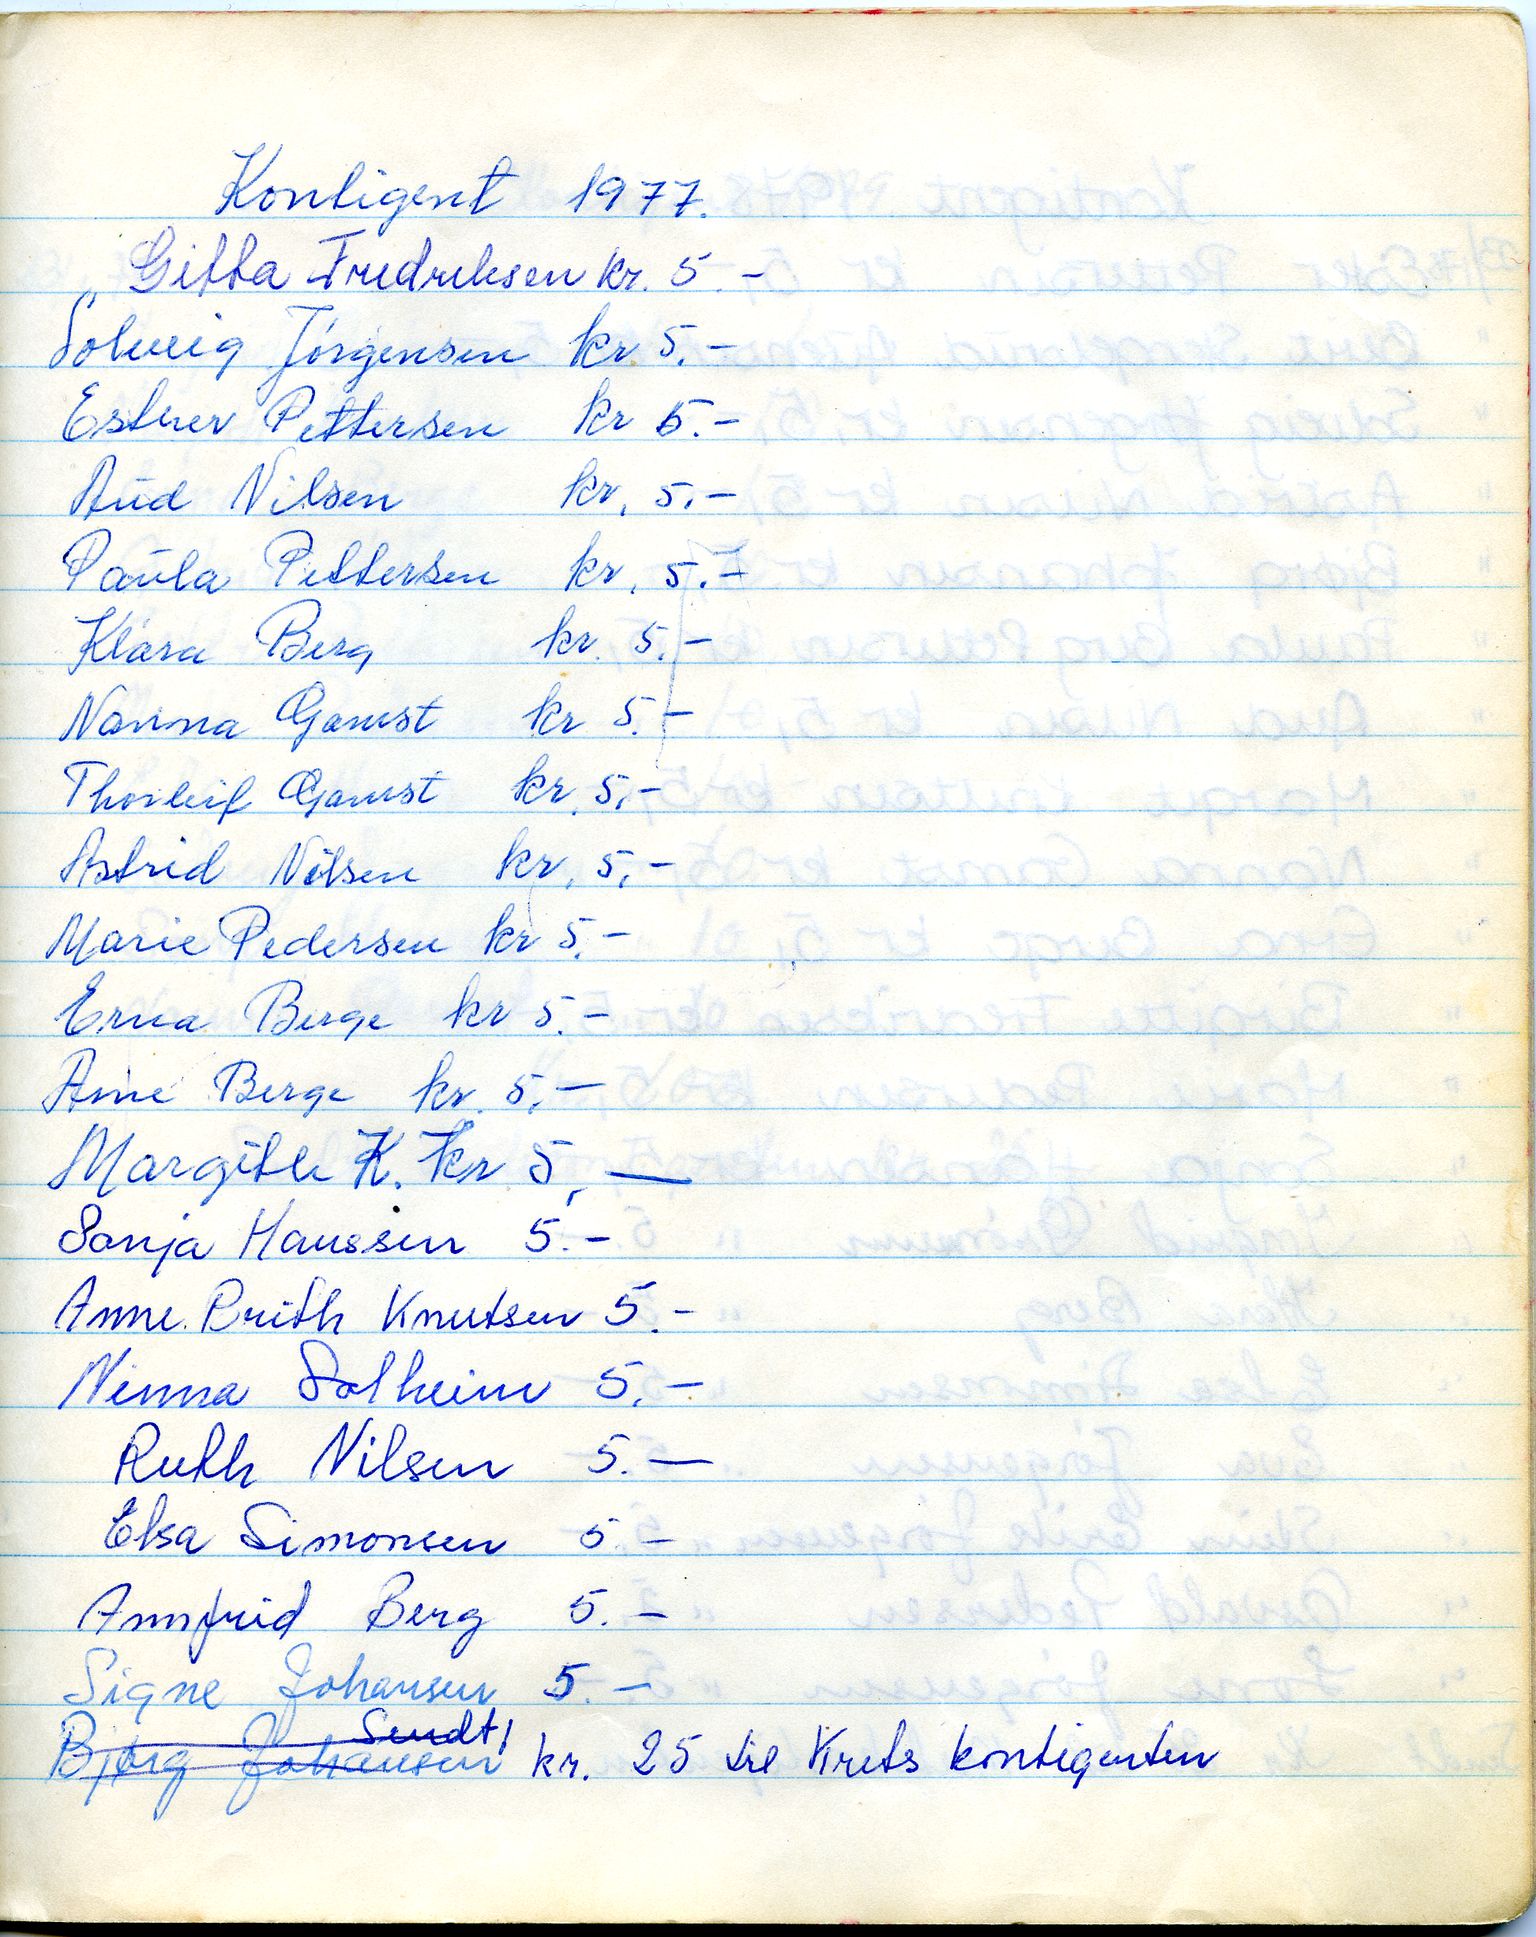 Kontigent 1977.
Gitta Fredriksen kr. 5.-
Solveig Jörgensen kr 5.-
Esther Pettersen kr 5.-
Aud Nilsen kr. 5.-
Paula Pettersen kr. 5.-
Klara Berg kr. 5.-
Nanna Gamst kr 5.-
Thorleif Gamst kr. 5.-
Astrid Nilsen kr. 5.-
Marie Pedersen kr 5.-
Erna Berge kr 5.-
Arne Berge kr. 5.-
Margith K. Kr 5,—
Sonja Hanssen 5.-
Anne. Brith Knutsen 5.-
Ninna Solheim 5.-
Ruth Nilsen 5.—
Elsa Simonsen 5.-
Annfrid Berg 5.-
Signe Johansen 5.-
Sendt!
Bjørg Johansen kr. 25 til Krets kontigenten